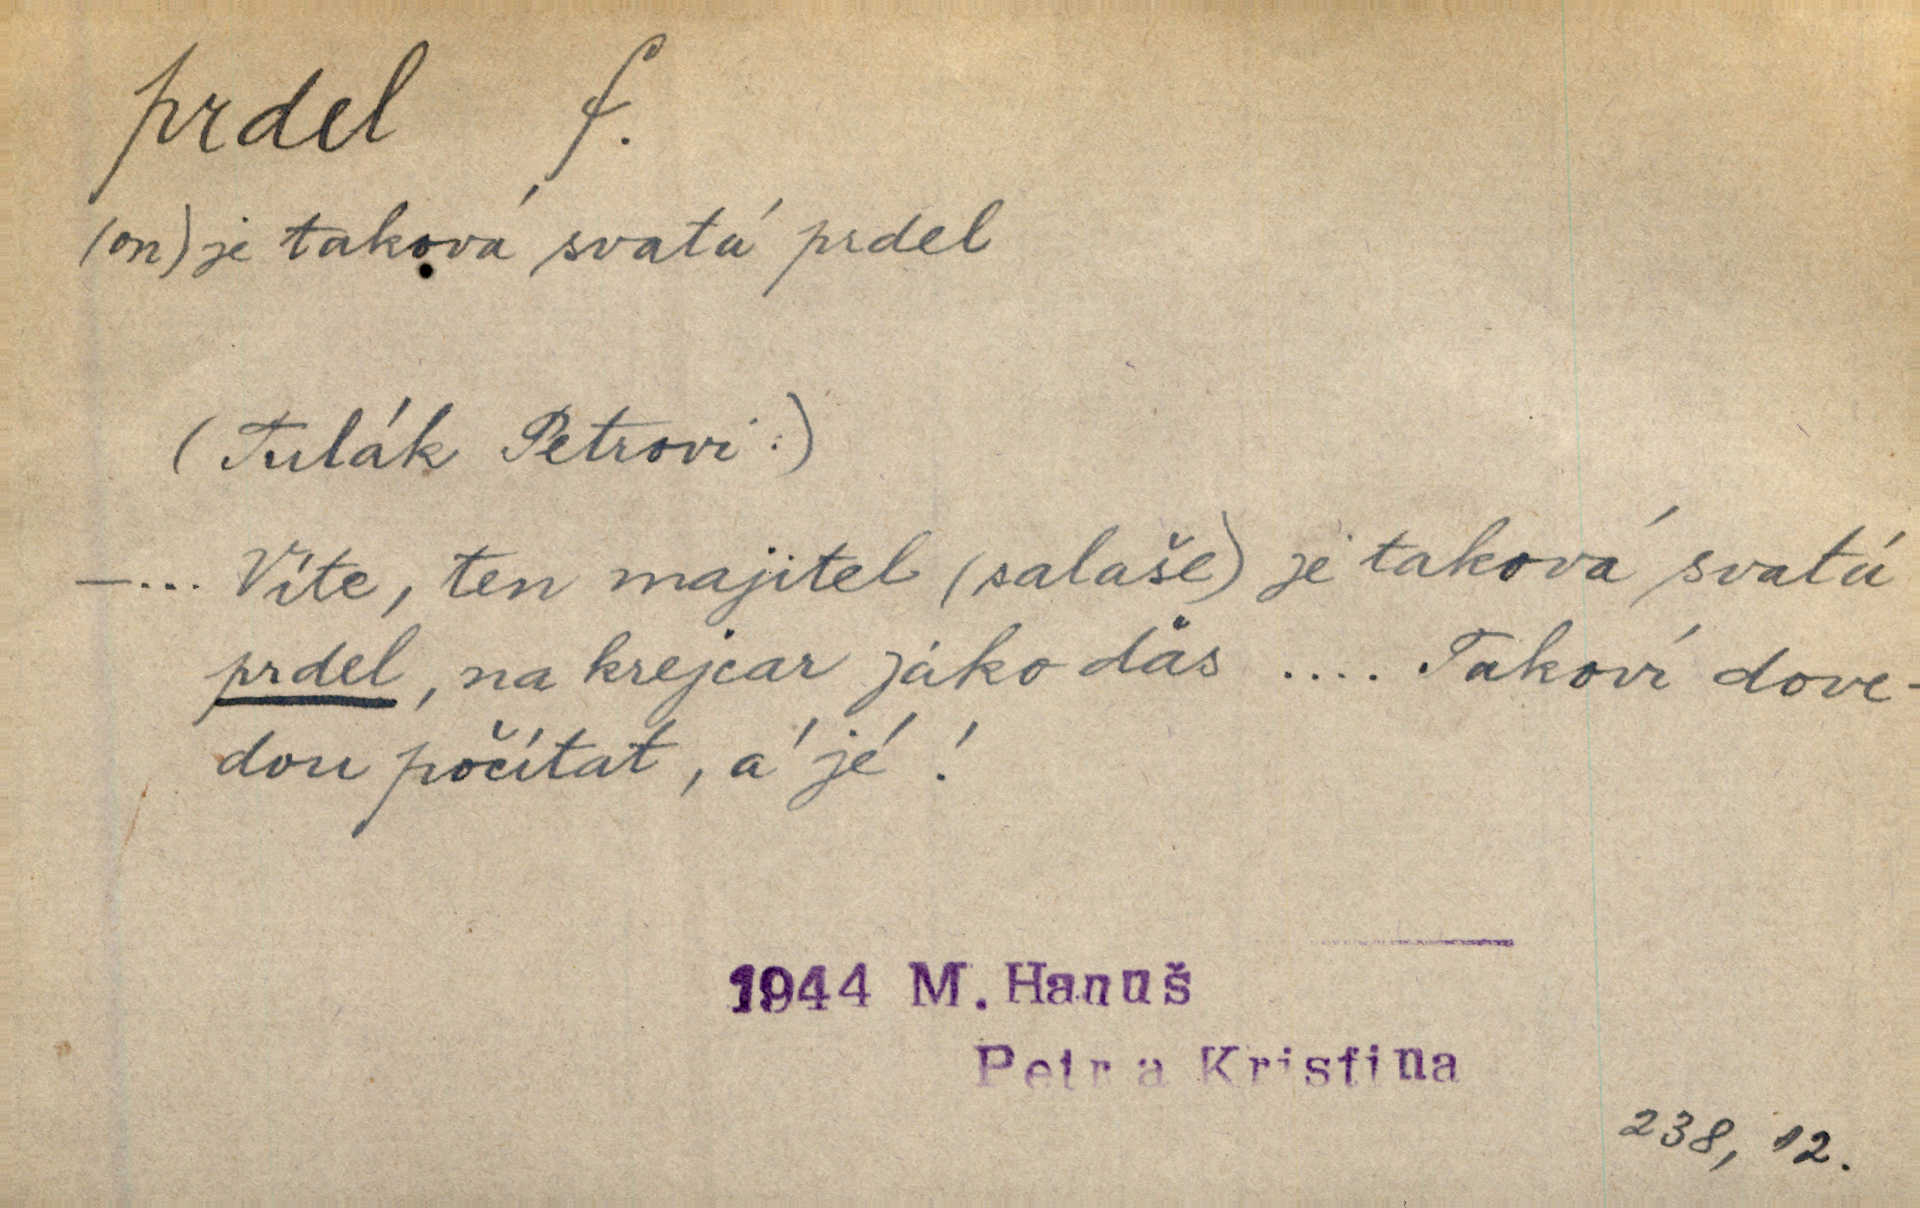 prdel f.
(on) je taková svatá prdel
(Tulák Petrovi:)
—... Víte, ten majitel (salaše) je taková svatá
prdel, na krejcar jako ďas .... Takoví dove-
dou počítat, á jé!
1944 M. Hanuš
Petr a Kristina
238, 12.